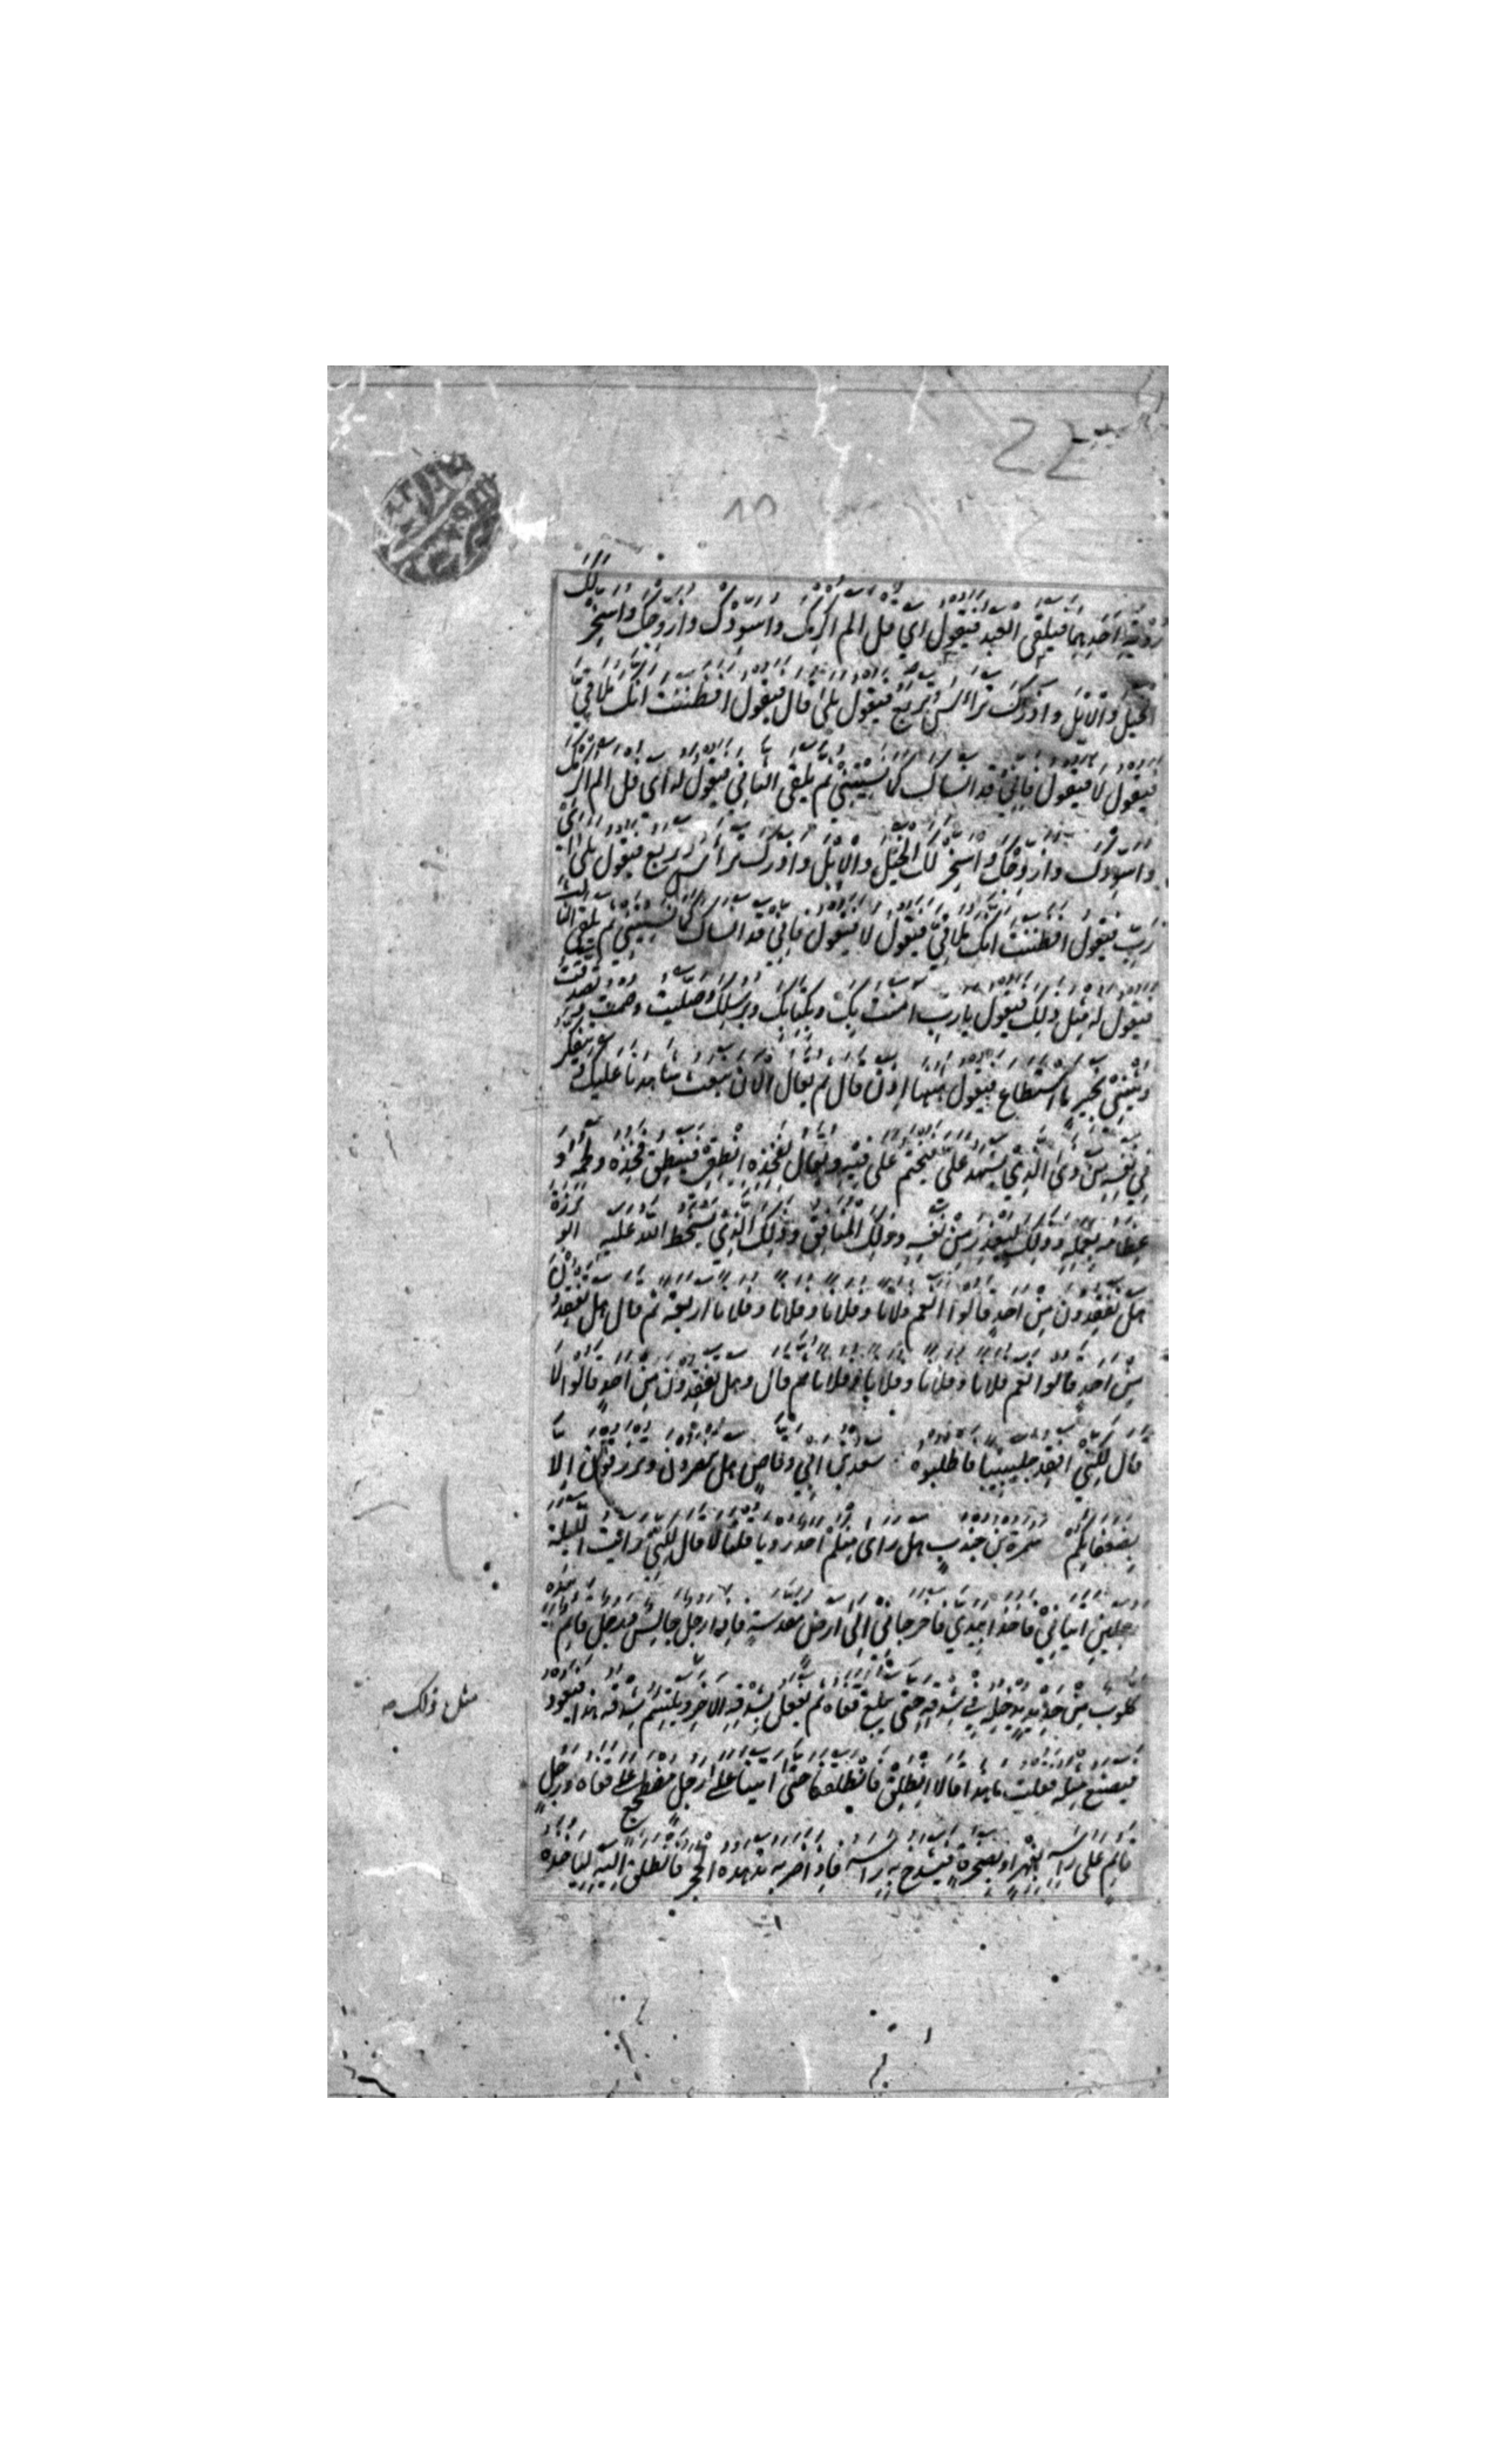 رؤية احدهما فيلقى العبد فيقول اي فل الم اكرمك واسودك وازوجك واسخر لك
الخيل والابل واذرك ترأس وتربع فيقول بلى قال فيقول افظننت انك ملاقي
فيقول لا فيقول فاني قد انساك كما نسيتني ثم يلقى الثاني فيقول له اى فل الم اكرمك
واسودك وازوجك واسخر لك الخيل والابل واذرك ترأس وتربع فيقول بلى اى
رب فيقول افظننت انك ملاقي فيقول لا فيقول فاني قد انساك كما نسيتني ثم يلقى الثالث
فيقول له مثل ذلك فيقول يا رب امنت بك وبكتابك وبرسلك وصليت وصمت وتصدقت
ويثني بخير ما استطاع فيقول ههنا اذن قال ثم يقال الان نبعث شاهدنا عليك ويتفكر
في نفسه من ذى الذي يشهد علي فيختم على فيه ويقال لفخذه انطقي فينطق فخذه ولحمه و
عظامه بعمله وذلك ليعذر من نفسه وذلك المنافق وذلك الذي يسخط الله عليه ابو برزة
هل تفقدون من احد قالوا نعم فلانا وفلانا وفلانا وفلانا اربعة ثم قال هل تفقدون
من احد قالوا نعم فلانا وفلانا وفلانا وفلانا ثم قال وهل تفقدون من احد قالوا لا
قال لكني افقد جليبيبا فاطلبوه سعد بن ابي وقاص هل تنصرون وترزقون الا
بضعفائكم سمرة بن جندب هل راى منكم احد رؤيا قلنا لا قال لكني رايت الليلة
رجلين اتياني فاخذا بيدي فاخرجاني الى ارض مقدسة فاذا رجل جالس ورجل قائم بيده
كلوب من حديد يدخله في شدقه حتى يبلغ قفاه ثم يفعل بشدقه الاخر ويلتئم شدقه هذا فيعود
مثل ذلك
فيصنع مثله فقلت ما هذا قالا انطلق فانطلقنا حتى اتينا على رجل مضطجع على قفاه ورجل
قائم على راسه بفهر او بصخرة فيشدخ به راسه فاذا ضربه تدهده الحجر فانطلق اليه لياخذه